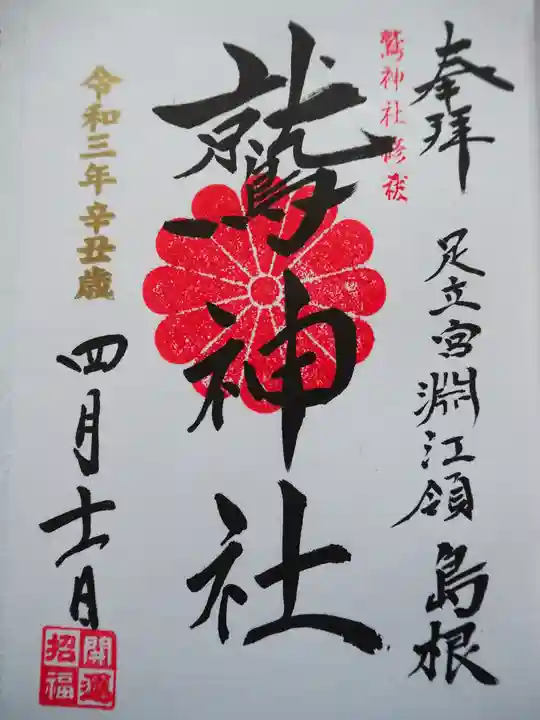 奉拝
足立宮淵江領島根
鷲神社修祓
鷲神社
令和三年辛丑歳
四月十一日
開運
招福